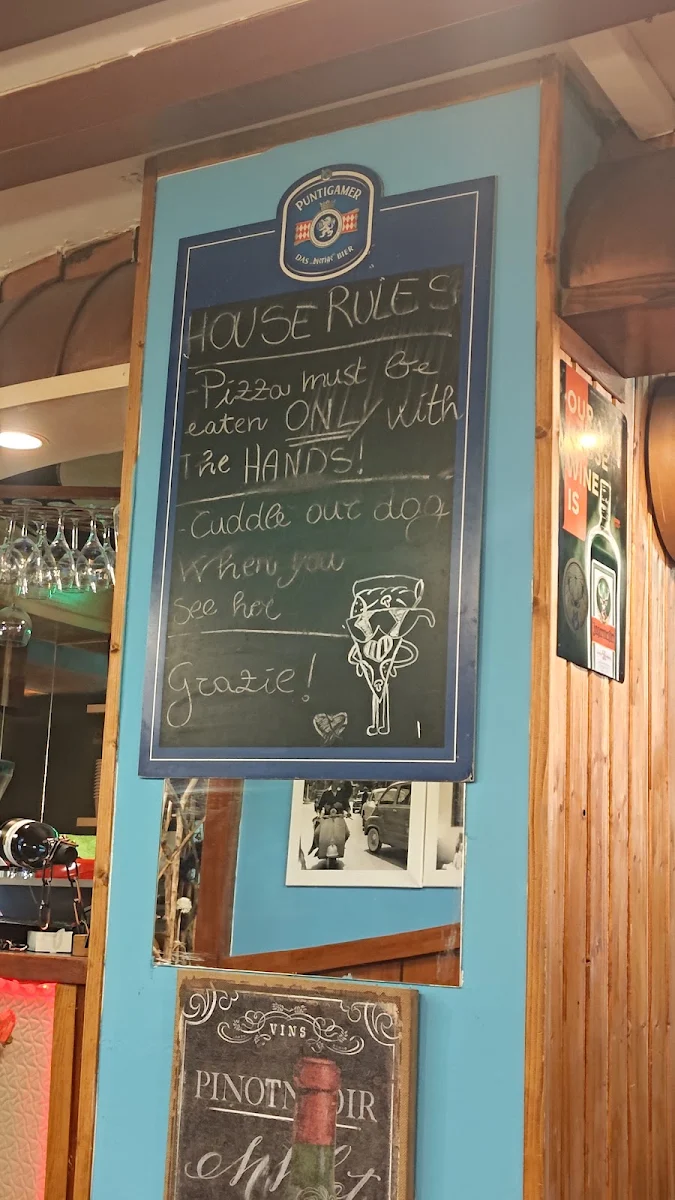 PUNTIGAMER
DAS „bierige“ BIER
HOUSE RULES
-Pizza must be
eaten ONLY with
The HANDS!
-Cuddle our dog
When you
see her
Grazie!
OUR
WINE
IS
VINS
PINOT NOIR